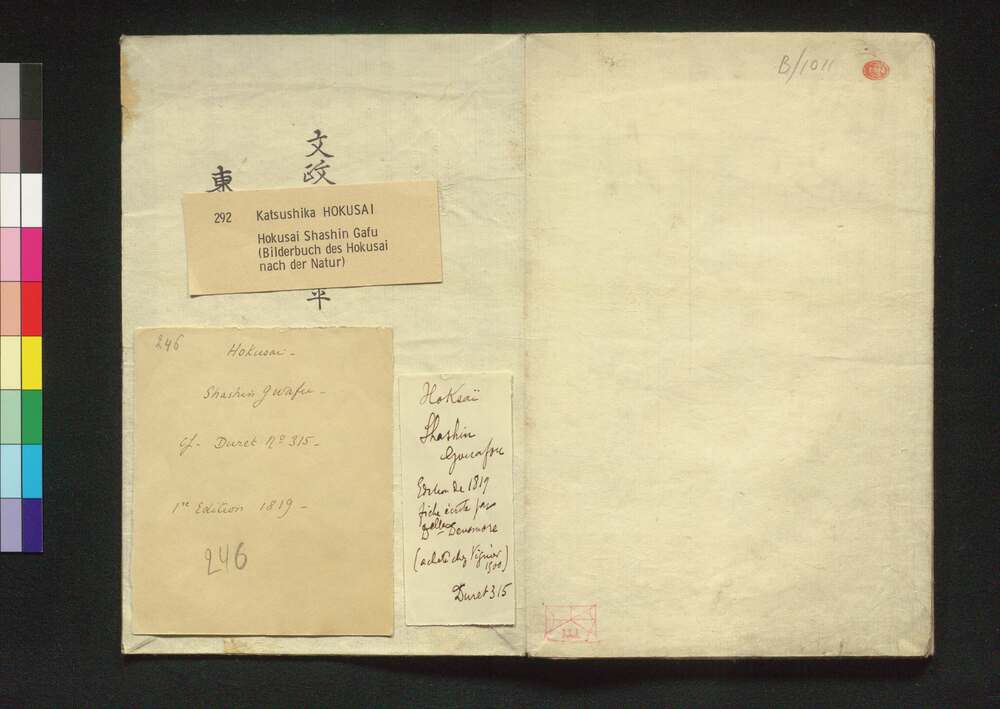 文政
平
東
292 Katsushika HOKUSAI
Hokusai Shashin Gafu
(Bilderbuch des Hokusai
nach der Natur)
246
Hokusai -
Shashin Gwafu -
Cf. Duret No 315 -
1re Edition 1819 -
246
Hoksaï
Shashin
Gouafou
Edition de 1819
fiche écrite par
Densmore
(acheté chez Vignier
1500)
Duret 315
B/1011